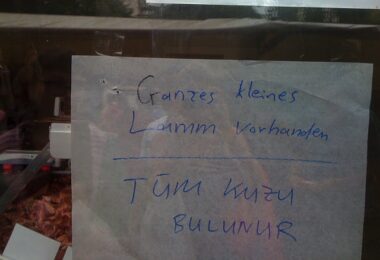 Ganzes kleines
Lamm vorhanden
TÜM KUZU
BULUNUR